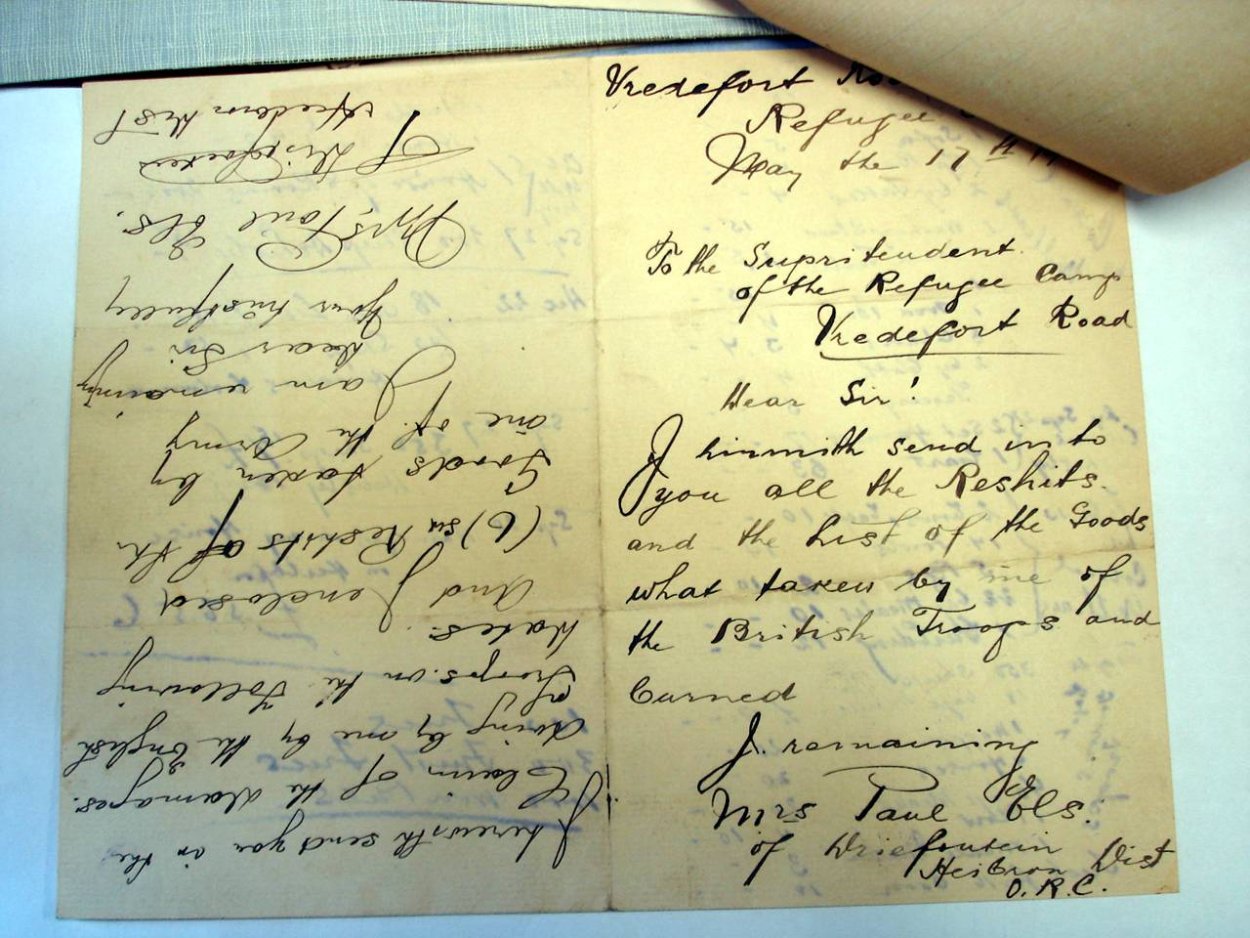 Vredefort
Refugee
May the 17th
To the Supritendent
of the Refugee Camp
Vredefort Road
Dear Sir!
I hinmith send in to
you all the Reshits.
and the List of the Goods
what taken by me of
the British Troops and
burned
I. remaining
Mrs Paul Els.
of Driefontein
Heilbron Dist
O.R.C.
I herewith send you in the
Claim of the damages.
doing by one by the English
of
Troops. on the Following
Dates.
And I enclosed
(6) six Reshits of the
Goods taken by
one of the Army
I am remaining
Dear Sir
Yours trustfully
Mrs, Paul Els.
of
Heilbron Dist